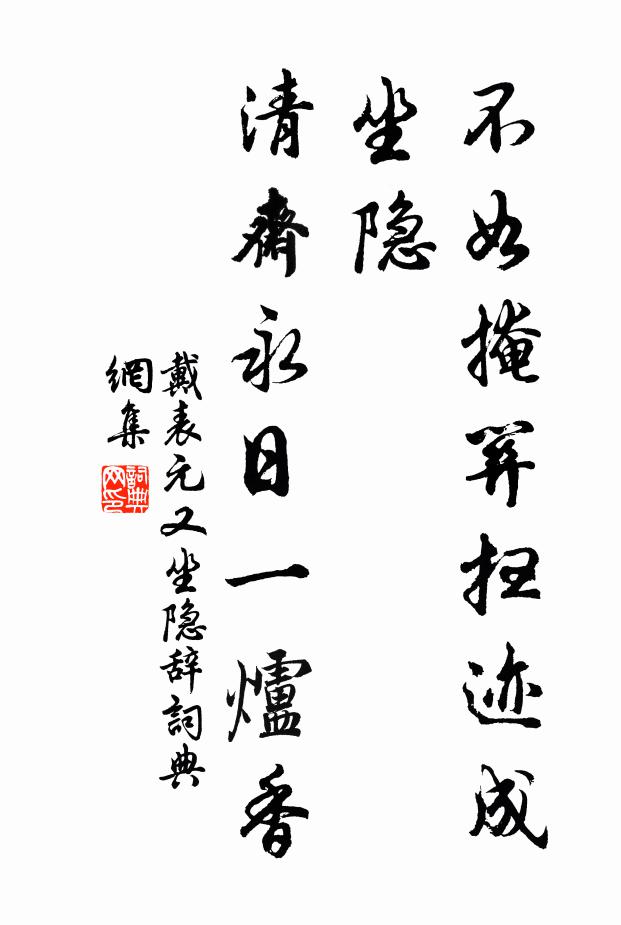 不如掩關扫迹成
坐隐
清齋永日一爐香
戴表元又坐隐辞詞典
網集
詞典网印